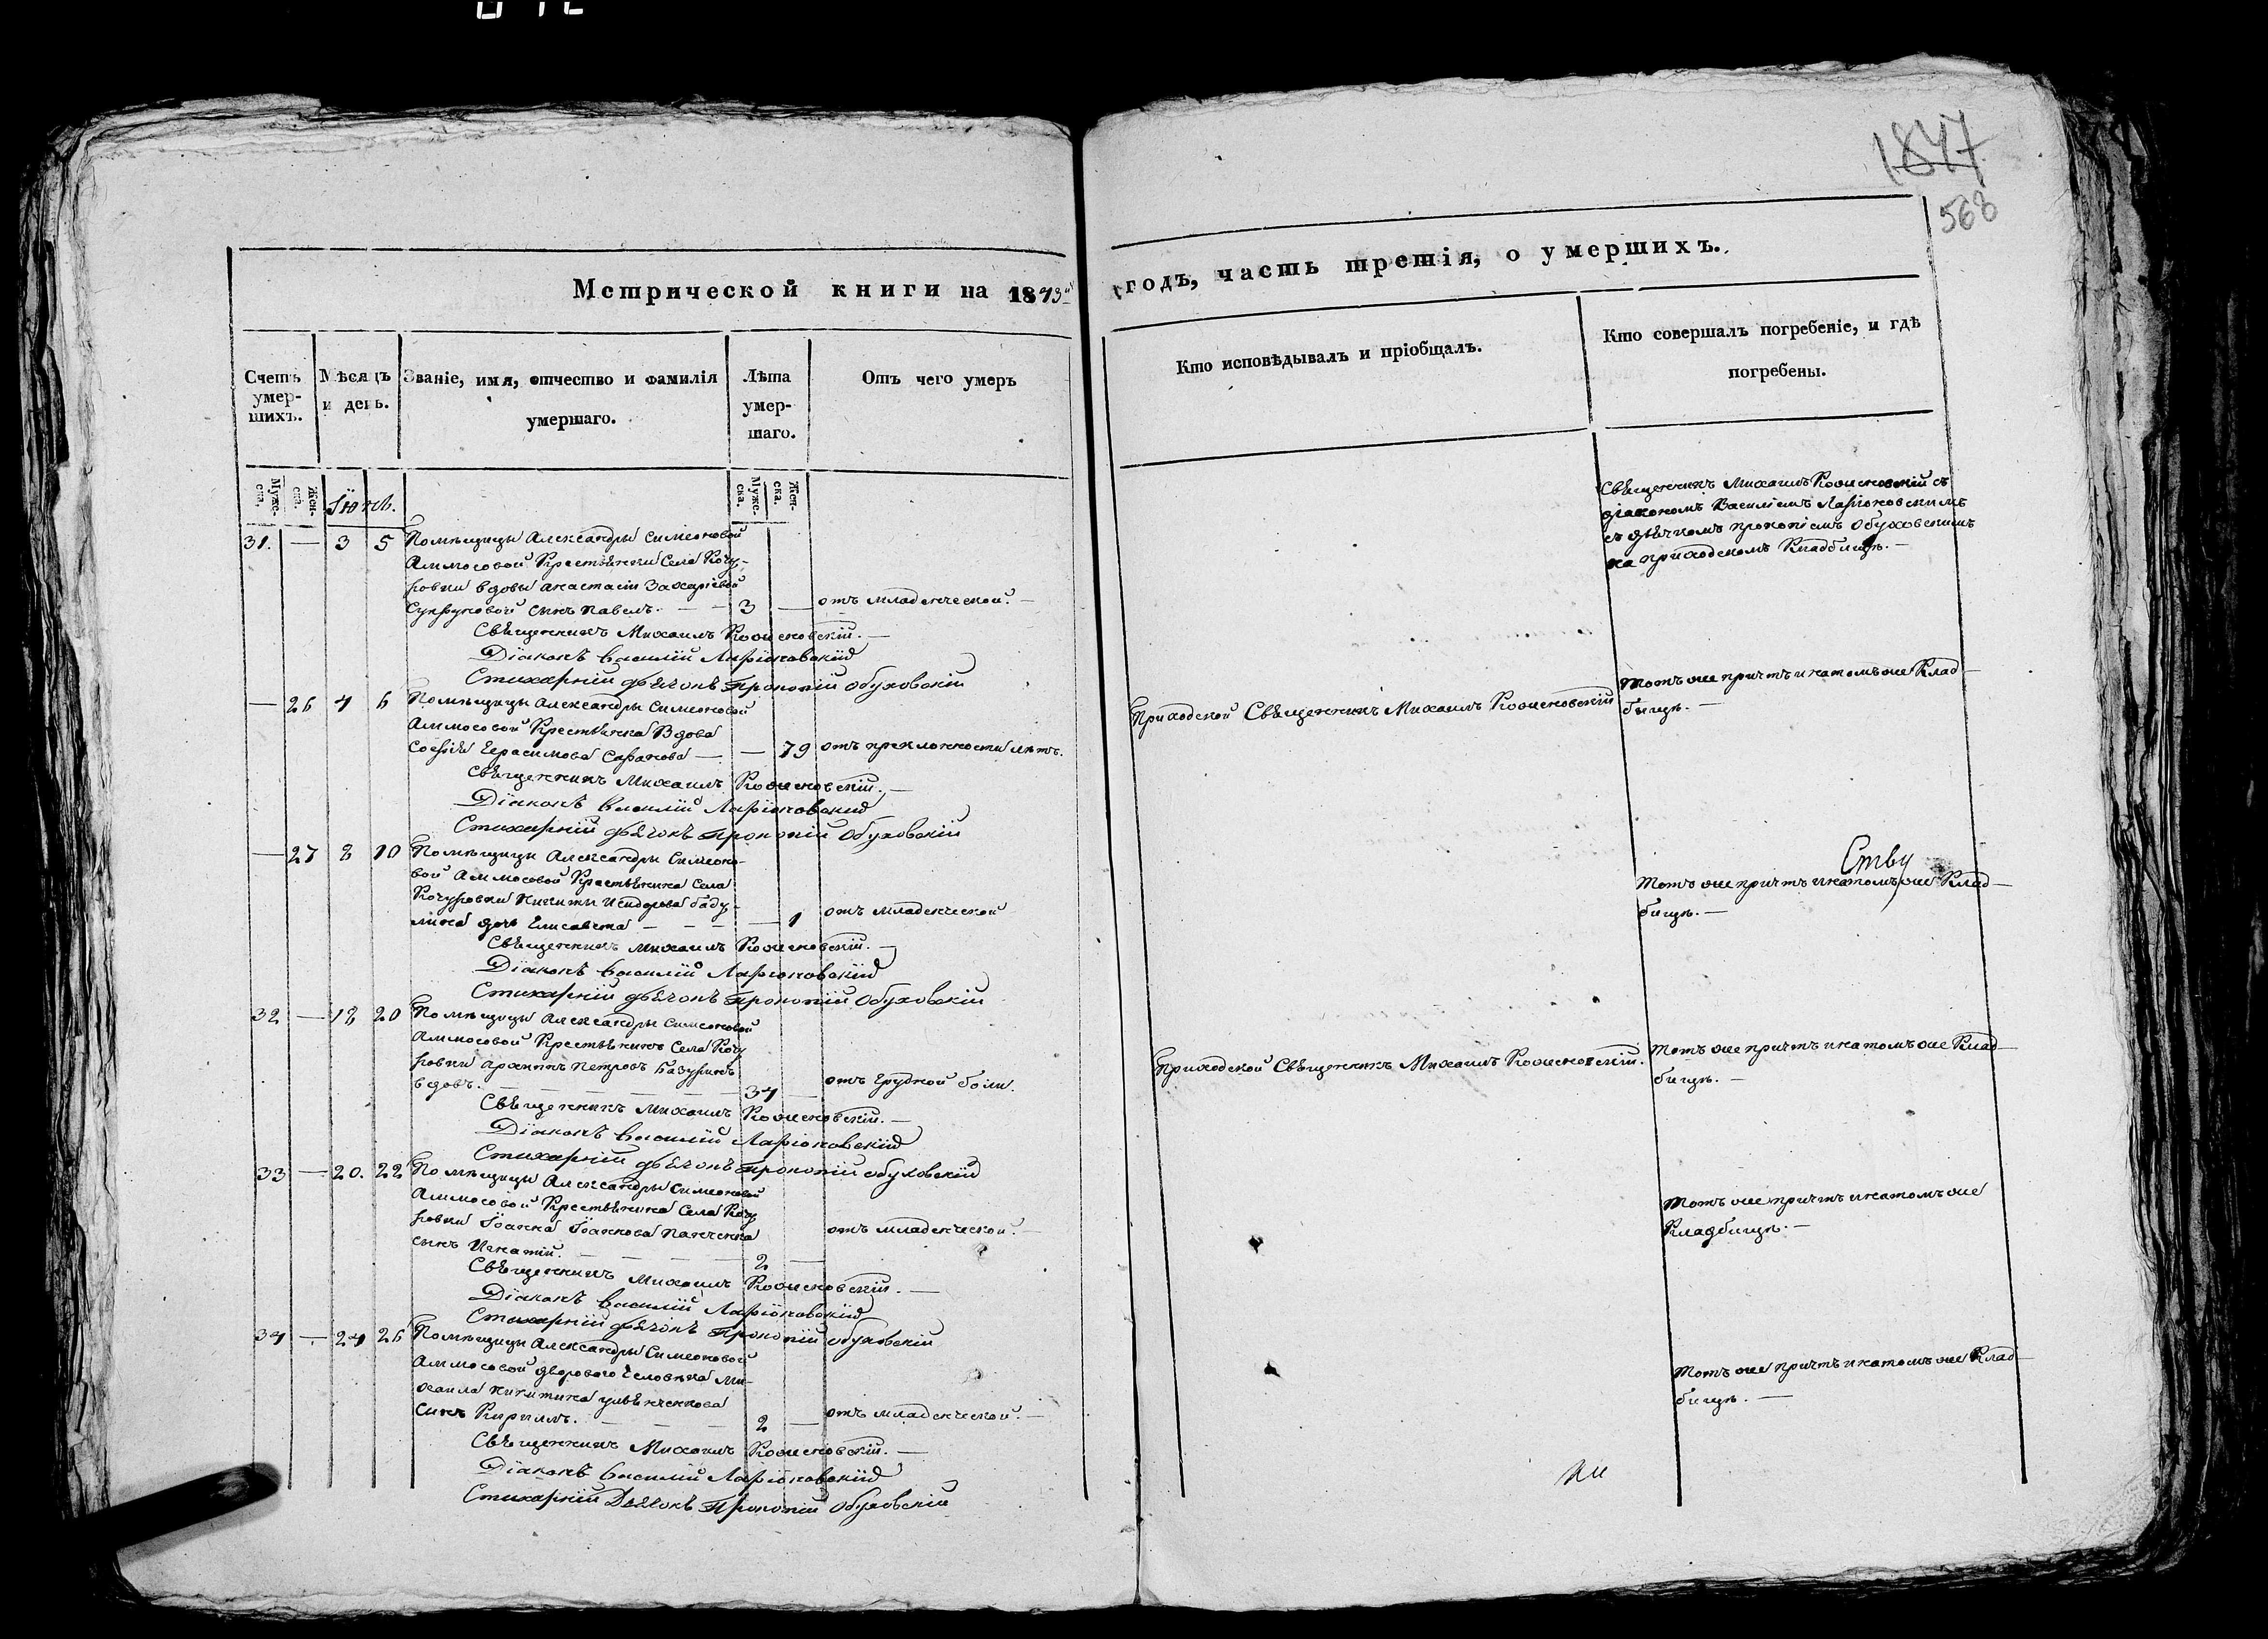 1847
568
Метрической книги на 1843й годъ, часть третія, о умершихъ.
Счетъ умер-шихъ.
Мѣсяцъ и день.
Званіе, имя, отчество и фамилія умершаго.
Лѣта умер-шаго.
Отъ чего умеръ
Кто исповѣдывалъ и пріобщалъ.
Кто совершалъ погребеніе, и гдѣ погребены.
Муже-ска.
Жен-ска.
Муже-ска.
Жен-ска.
31. — 3 5 Помѣщицы Александры Симеоновой
Аммосовой Крестьянки Села Кочу-
ровки вдовы Анастасіи Захаріевой
сынъ Павелъ. — — 3 — отъ младенческой. —
Священникъ Михаилъ
Діаконъ Василій Ларіоновскій
Стихарній дьячокъ Прокопій Обуховскій
Священникъ Михаилъ съ
діакономъ Василіемъ Ларіоновскимъ
съ дьячкомъ Прокопіемъ Обуховскимъ
на приходскомъ Кладбищѣ. —
— 26 4 6 Помѣщицы Александры Симеоновой
Аммосовой Крестьянка Вдова
Софія Герасимова — — 79 отъ преклонности лѣтъ.
Священникъ Михаилъ
Діаконъ Василій Ларіоновскій
Стихарній дьячокъ Прокопій Обуховскій
Приходской Священникъ Михаилъ
Тотъ же причтъ и на томъ же Клад-
бищѣ. —
— 27 8 10 Помѣщицы Александры Симеоно-
вой Аммосовой Крестьянина Села
Кочуровки Никиты Исидорова Баду-
лина дочь Елисавета — — — — 1 отъ младенческой
Священникъ Михаилъ
Діаконъ Василій Ларіоновскій
Стихарній дьячокъ Прокопій Обуховскій
Ству
Тотъ же причтъ и на томъ же Клад-
бищѣ. —
32 — 18 20 Помѣщицы Александры Симеоновой
Аммосовой Крестьянинъ Села Кочу
ровки Архипъ Петровъ
вдовъ. — — — 34 — отъ грудной боли.
Священникъ Михаилъ
Діаконъ Василій Ларіоновскій
Стихарній дьячокъ Прокопій Обуховскій
Приходской Священникъ Михаилъ
Тотъ же причтъ и на томъ же Клад-
бищѣ. —
33 — 20. 22 Помѣщицы Александры Симеоновой
Аммосовой Крестьянина Села Кочу
ровки Іоанна Іоаннова
сынъ Игнатій. — — — 2 — отъ младенческой. —
Священникъ Михаилъ
Діаконъ Василій Ларіоновскій
Стихарній дьячокъ Прокопій Обуховскій
Тотъ же причтъ и на томъ же
Кладбищѣ. —
34 — 24 26 Помѣщицы Александры Симеоновой
Аммосовой дворового человѣка Ми-
хаила Никитина
сынъ Кириллъ. — — 2 — отъ младенческой. —
Священникъ Михаилъ
Діаконъ Василій Ларіоновскій
Стихарній Дьячокъ Прокопій Обуховскій
Тотъ же причтъ и на томъ же Клад-
бищѣ. —